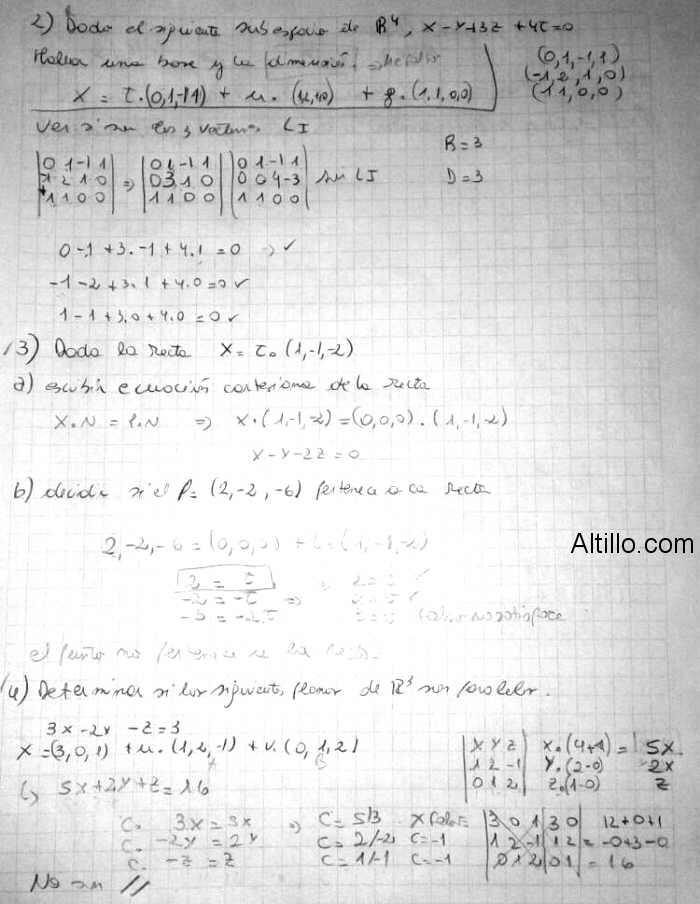 2) Dado el siguiente subespacio de R⁴, x-y+3z+4t=0
Hallar una base y la dimensión.
(0,1,-1,1)
(-1,2,1,0)
(1 1,0,0)
X = t.(0,1,-1 1) + u. + g.(1,1,0,0)
Ver si son los 3 vectores LI
B=3
D=3
|0 1 -1 1| |0 1 -1 1| |0 1 -1 1|
|-1 2 1 0| => |0 3 1 0| |0 0 4 -3| son LI
|1 1 0 0| |1 1 0 0| |1 1 0 0|
0-1+3.-1+4.1=0 -> ✓
-1-2+3.1+4.0=0 ✓
1-1+3.0+4.0=0 ✓
3) Dada la recta X= t.(1,-1,-2)
a) escribir ecuación cartesiana de la recta
X.N = P.N => x.(1,-1,-2)=(0,0,0).(1,-1,-2)
x-y-2z=0
b) decidir si el P=(2,-2,-6) pertenece a la recta
2,-2,-6=(0,0,0)+t.(1,-1,-2)
2 = t
-2 = -t =>
el punto no pertenece a la recta.
Altillo.com
4) Determinar si los siguientes planos de R³ son paralelos.
3x-2y-z=3
X=(3,0,1)+u.(1,2,-1)+v.(0,1,2)
|x y z| x.(4+1)= 5x
|1 2 -1| y.(2-0) 2x
|0 1 2| z.(1-0) z
5x+2y+z=16
C. 3x=5x => C=5/3
C. -2y=2y C=2/-2 C=-1
C. -z=z C=1/-1 C=-1
|3 0 1|3 0| 12+0+1
|1 2 -1|1 2| = -0+3-0
|0 1 2|0 1| = 16
No son //